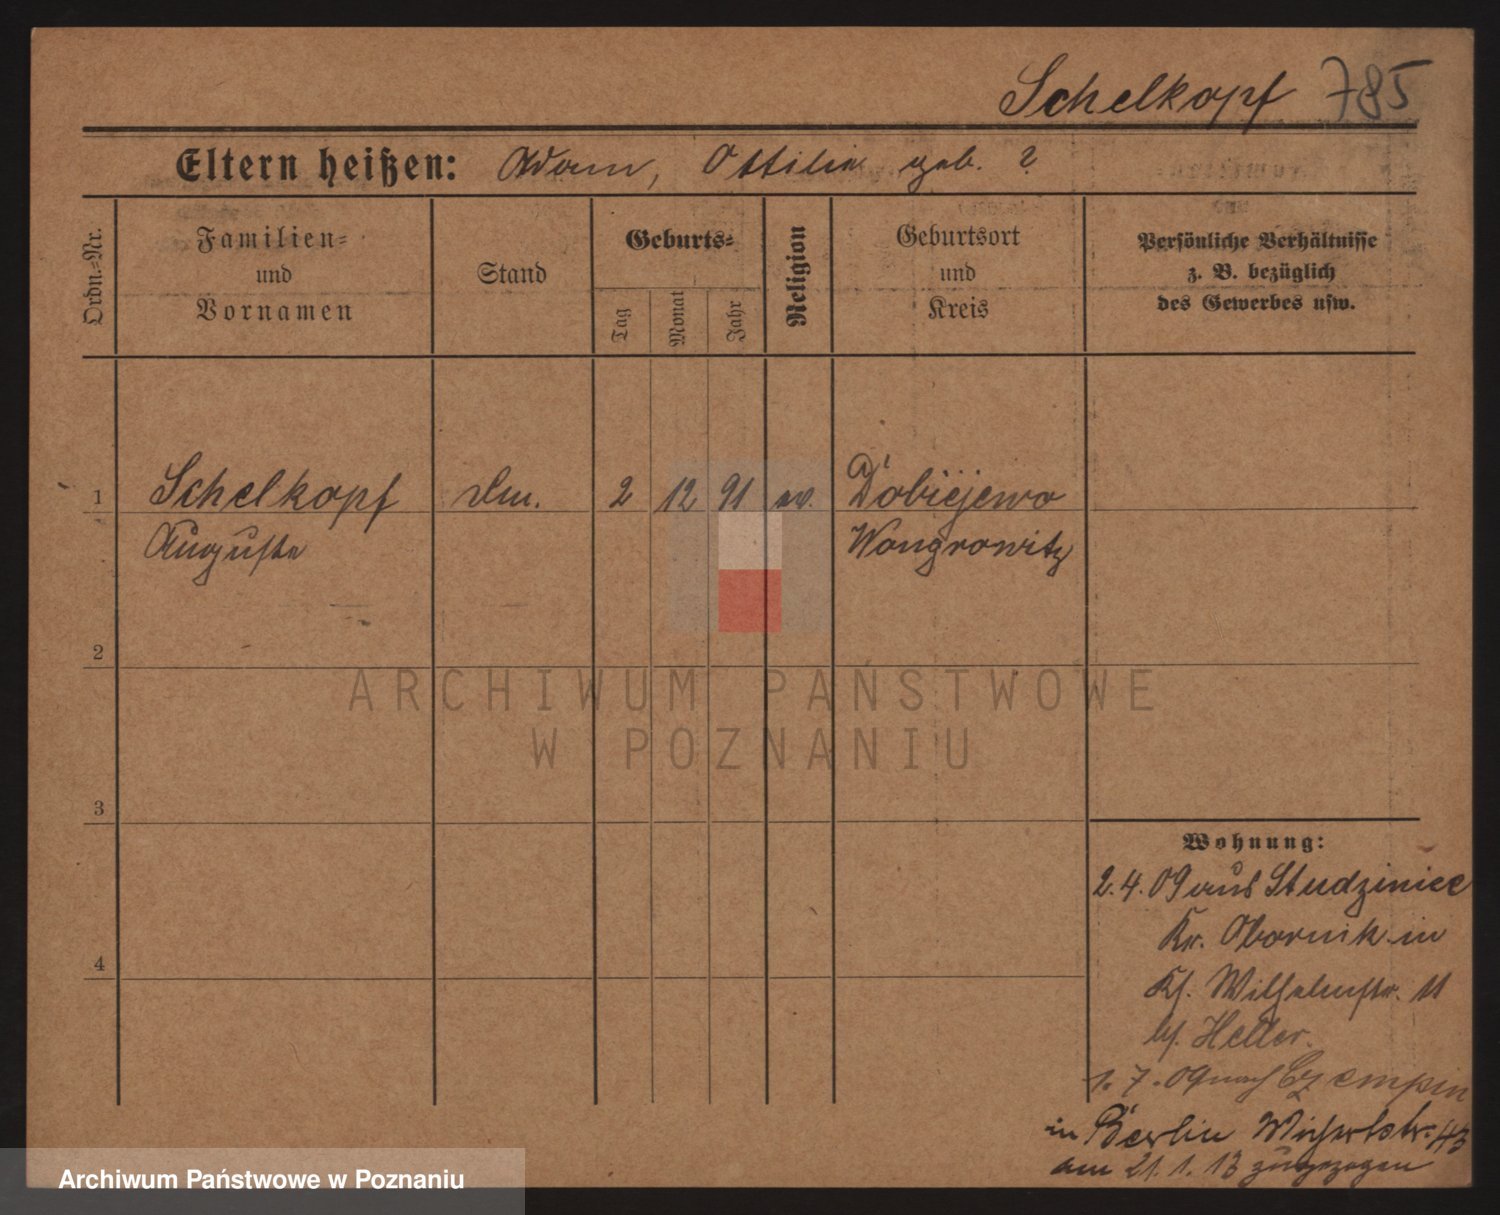 Schelkopf 785
Eltern heißen: Adam, Ottilie geb. ?
Ordn.=Nr.
Familien=
und
Vornamen
Stand
Geburts=
Tag
Monat
Jahr
Religion
Geburtsort
und
Kreis
Persönliche Verhältnisse
z. B. bezüglich
des Gewerbes usw.
1 Schelkopf 2 12 91 ev. Dobiejewo
Auguste Wongrowitz
2
3
4
ARCHIWUM PAŃSTWOWE
W POZNANIU
Wohnung:
2.4.09 aus Studziniec
Kr. Obornik in
Wilhelmstr. 11
Heller.
1.7.09 nach Czempin
in Berlin Wichertstr. 43
am 21.1.13 zugezogen
Archiwum Państwowe w Poznaniu